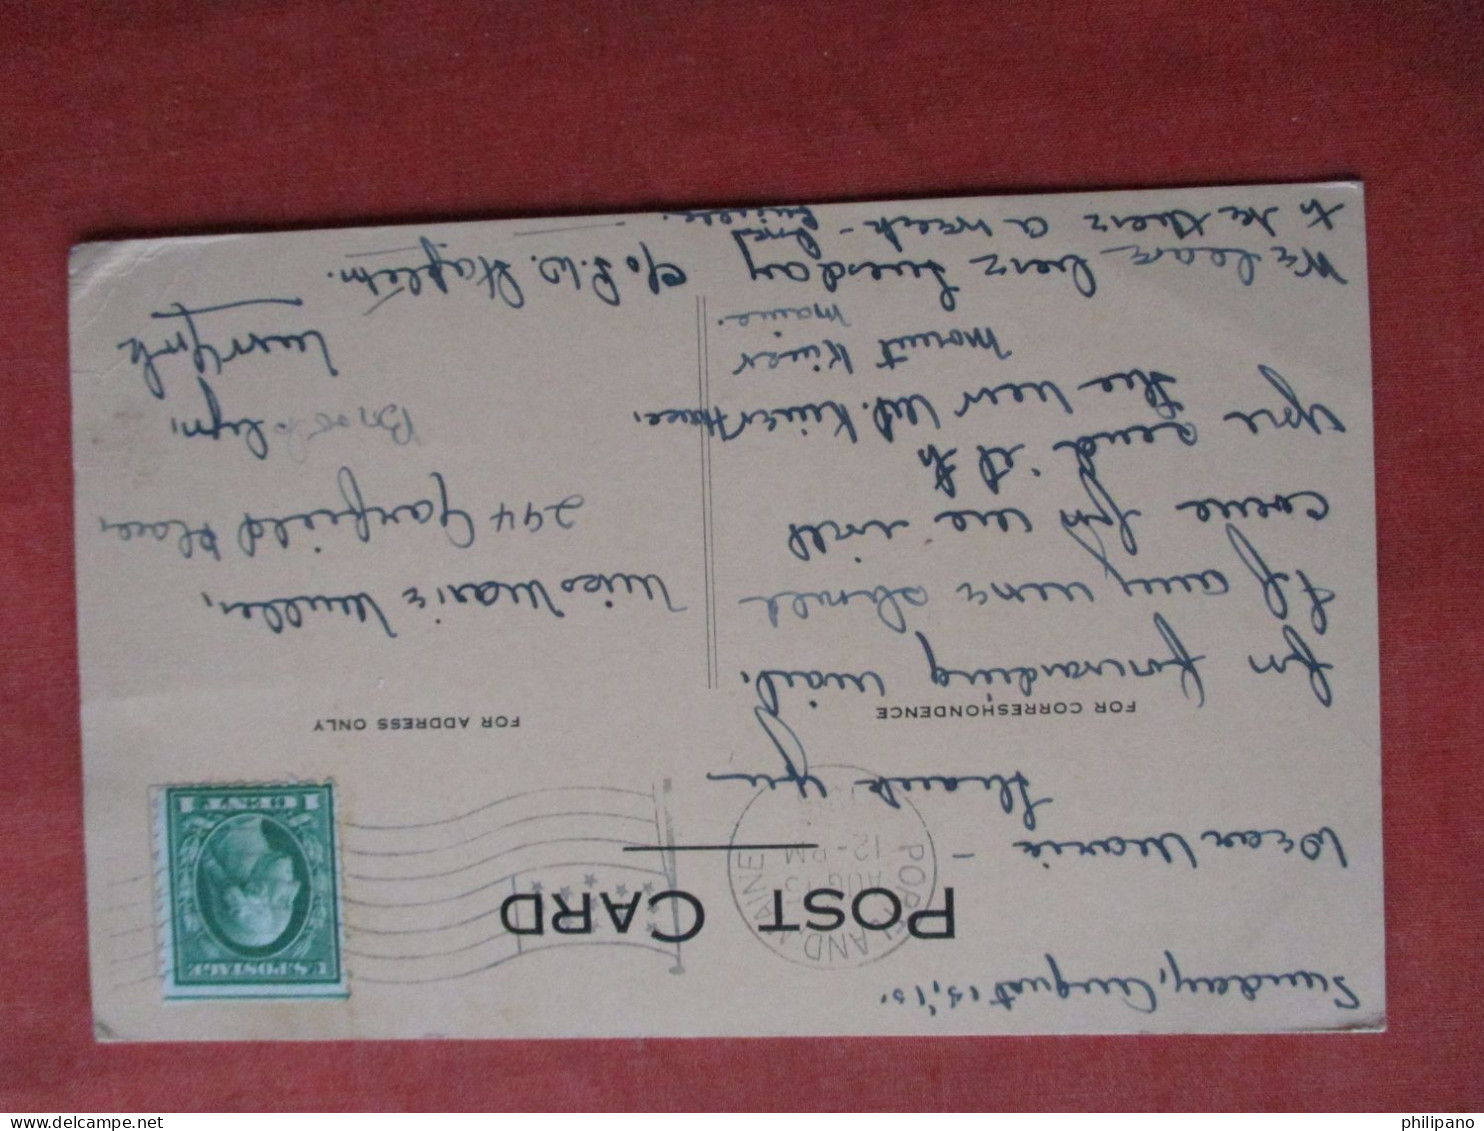 Sunday, August 15, '15.
POST CARD
PORTLAND, MAINE
AUG 15
12-PM
U.S. POSTAGE
1 CENT 1
Dear Marie -
Thank you
FOR CORRESPONDENCE
for forwarding mail.
If any more should
come for me will
you send it to
the New Mt. Kineo House,
Mount Kineo
Maine.
We leave here Tuesday
to be there a week - and
FOR ADDRESS ONLY
Miss Marie Muller,
294 Garfield Place,
Brooklyn,
New York
c/o S. W.
philipano